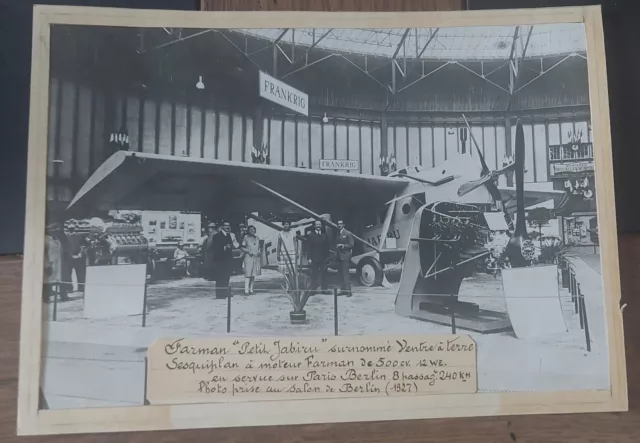 FRANKRIG
FRANKRIG
Farman "Petit Jabiru" surnommé Ventre à terre
Sesquiplan à moteur Farman de 500 cv. 12 WE.
en service sur Paris Berlin 8 passagrs 240 KH
Photo prise au salon de Berlin (1927)